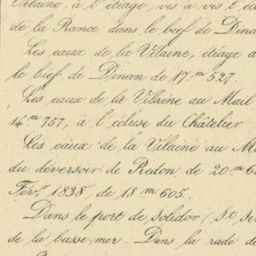 Vilaine, à l'étiage, vis à vis l'é
de la Rance dans le bief de Dina
Les eaux de la Vilaine, étiage a
le bief de Dinan de 17.m 527.
Les eaux de la Vilaine au Mail
14m 757, à l'écluse du Châtelier
Les eaux de la Vilaine au M
du déversoir de Redon de 20.m 6
Fév.r 1838, de 18 m 605.
Dans le port de Solidor (St. Se
de la basse mer. Dans la rade d